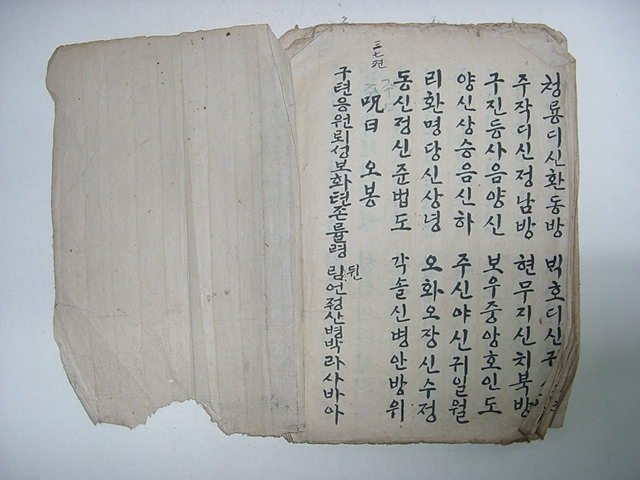 쳥룡디신환동방 빅호디신
주작디신정남방 현무지신치북방
구진등사음양신 보우중앙호인도
양신상승음신하 주신야신귀일월
리환명당신상녕 오화오장신수정
동신정신준법도 각솔신병안방위
三七편
呪曰 오봉
구텬응원뢰성보화텬존률령 림언졍산병박라사바아